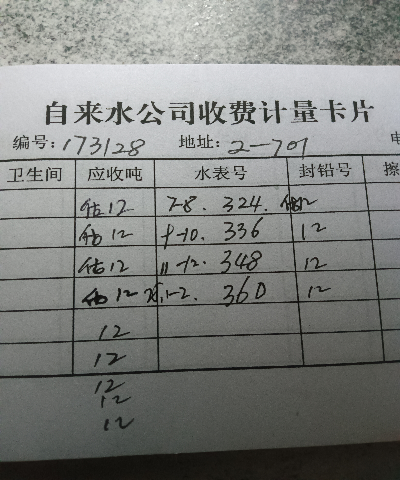 自来水公司收费计量卡片
编号:173128 地址:2-701 电
卫生间 应收吨 水表号 封铅号 擦
估12 7-8. 324. 估12
估12 9-10. 336 12
估12 11-12. 348 12
估12 26.1-2. 360 12
12
12
12
12
12